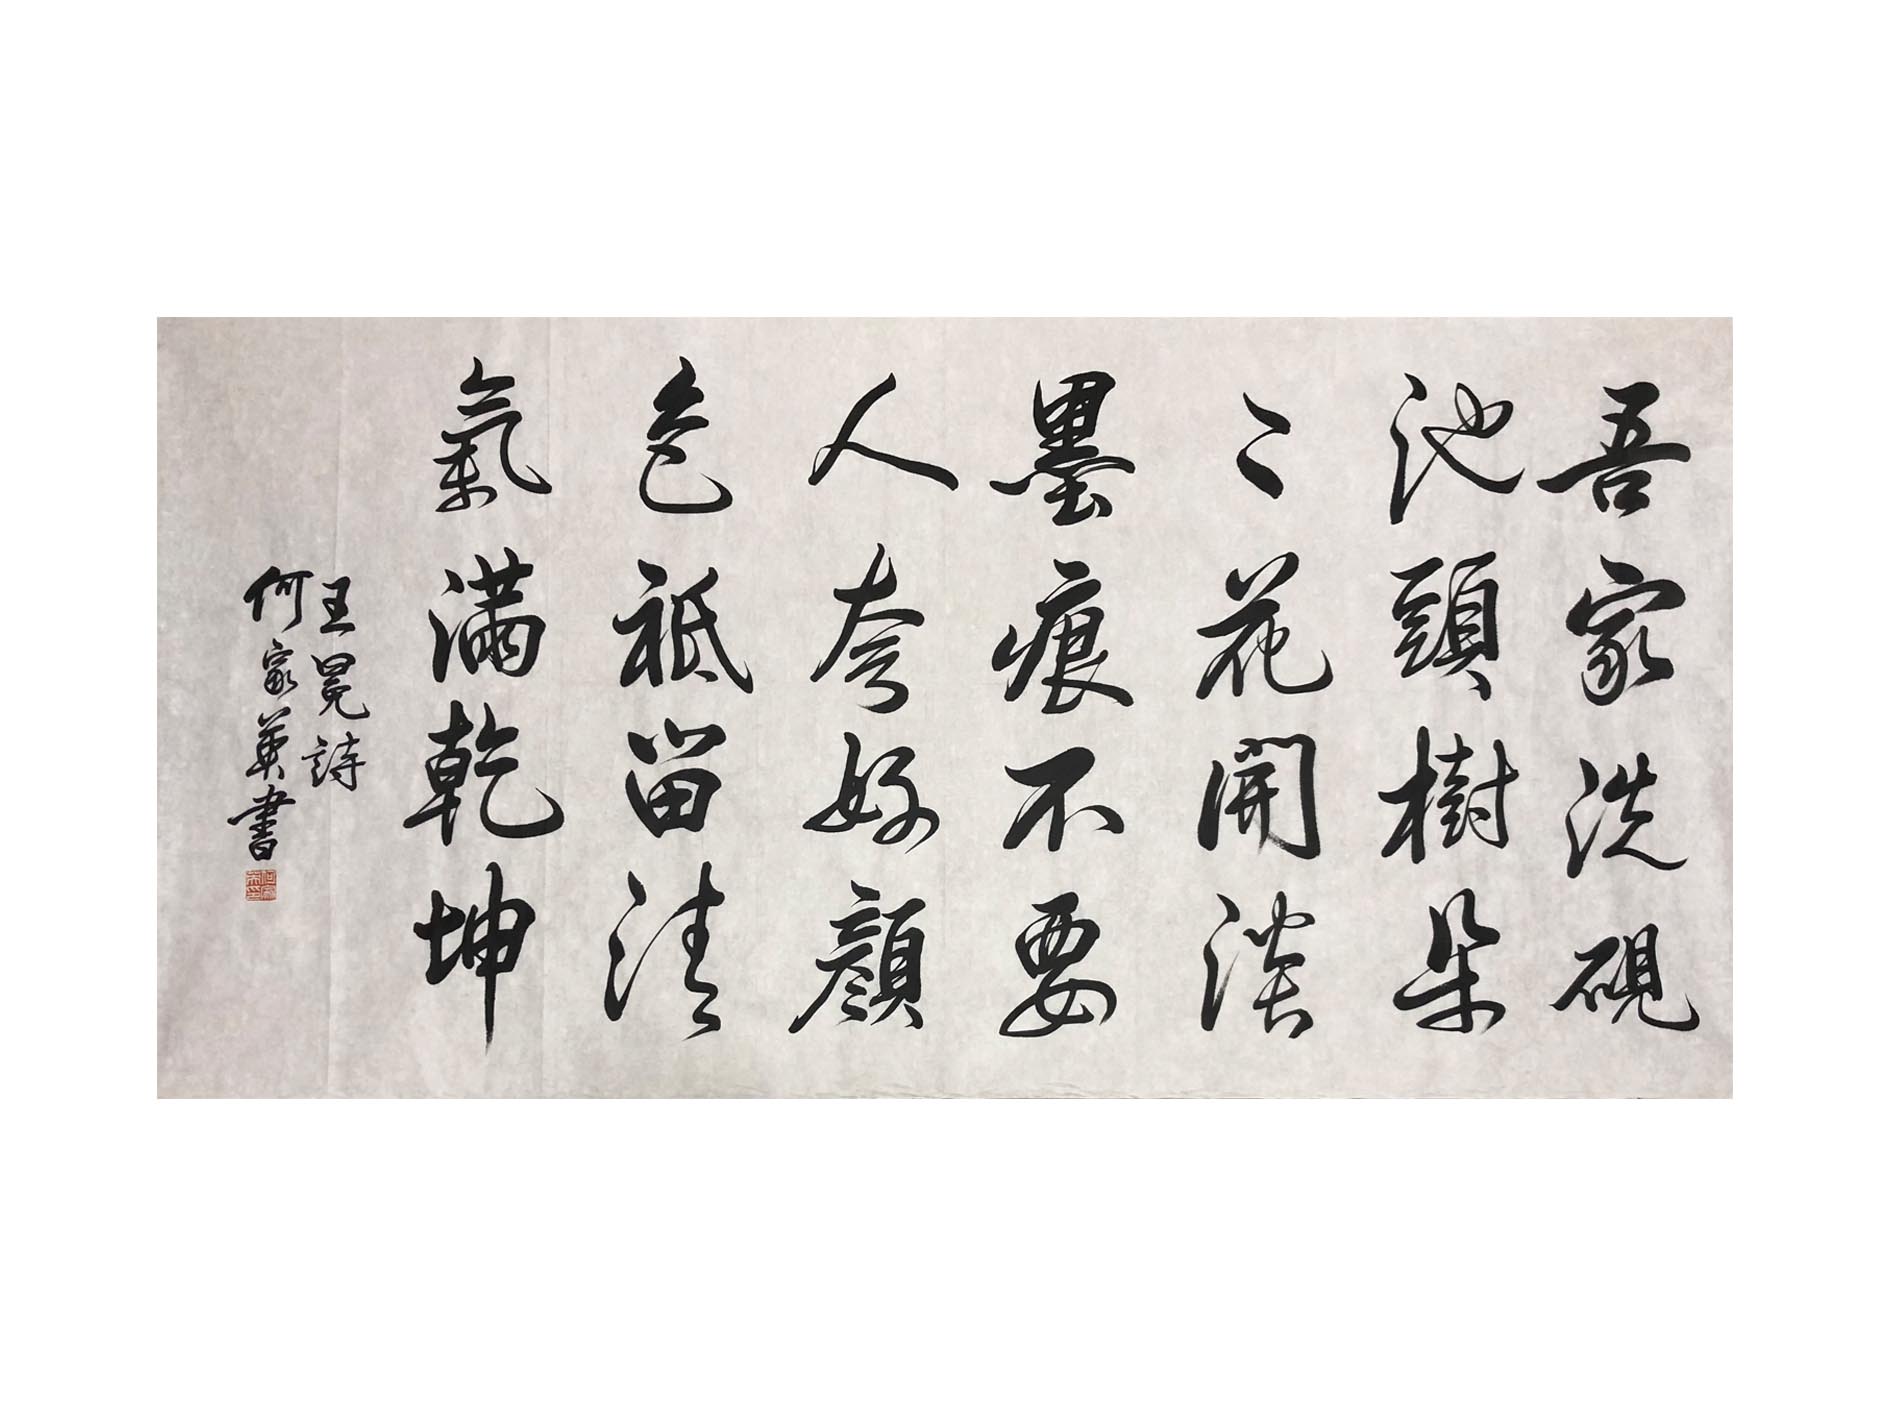 吾家洗硯
池頭樹朵
〻花開淡
墨痕不要
人夸好顔
色祗留清
氣滿乾坤
王冕詩
何家英書